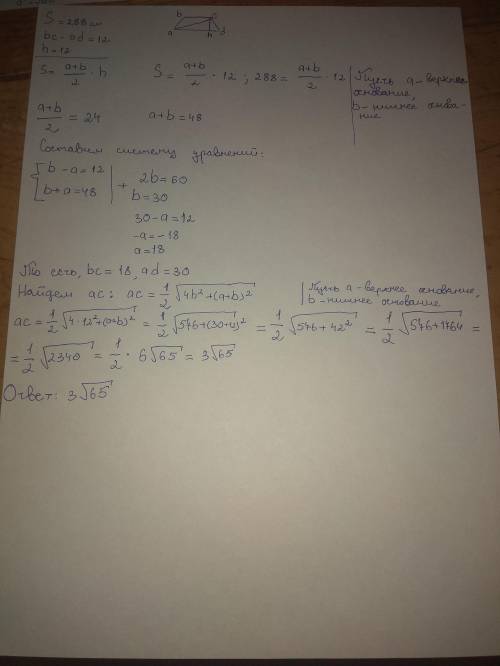 S = 288 см
bc - ad = 12
h = 12
b c
a h d
S = a+b/2 · h S = a+b/2 · 12 ; 288 = a+b/2 · 12
Пусть a - верхнее
основание,
b - нижнее основа-
ние
a+b/2 = 24 a+b = 48
Составим систему уравнений:
{ b - a = 12
b + a = 48 | + 2b = 60
b = 30
30 - a = 12
-a = -18
a = 18
То есть, bc = 18, ad = 30
Найдем ac: ac = 1/2 √4h² + (a+b)²
Пусть a - верхнее основание,
b - нижнее основание
ac = 1/2 √4 · 12² + (a+b)² = 1/2 √576 + (30+)² = 1/2 √576 + 42² = 1/2 √576 + 1764 =
= 1/2 √2340 = 1/2 · 6√65 = 3√65
Ответ: 3√65